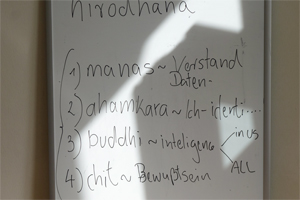 nirodhana
1) manas ~ Verstand
Daten-
2) ahamkara ~ Ich-identi....
3) buddhi ~ inteligenc
in us
ALL
4) chit ~ Bewußtsein